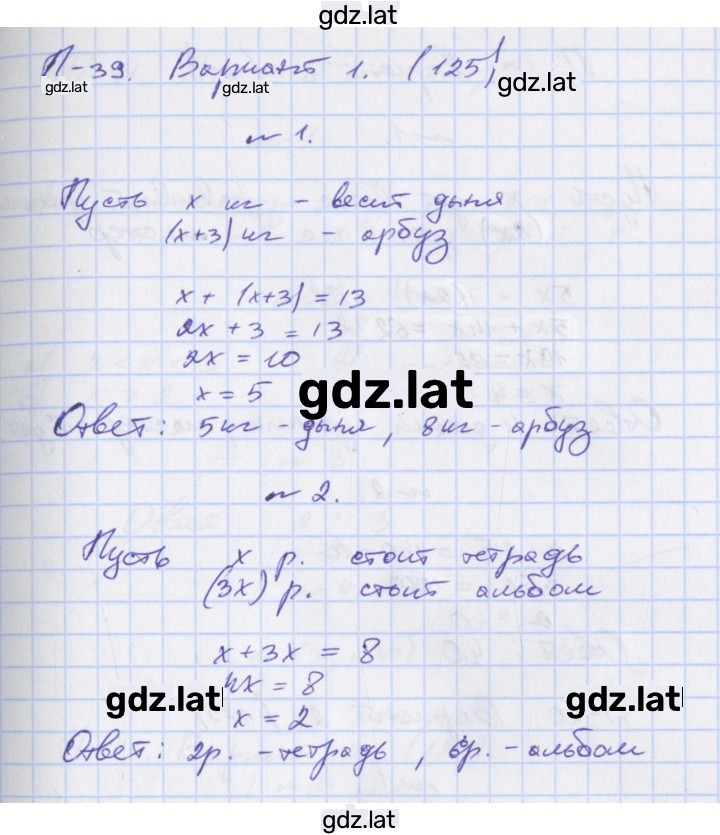 gdz.lat
П-39. Вариант 1. (125)
gdz.lat gdz.lat gdz.lat
№ 1.
Пусть x кг - весит дыня
(x+3) кг - арбуз
x + (x+3) = 13
2x + 3 = 13
2x = 10
x = 5
gdz.lat
Ответ: 5кг - дыня, 8кг - арбуз
№ 2.
Пусть x р. стоит тетрадь
(3x) р. стоит альбом
x + 3x = 8
4x = 8
gdz.lat gdz.lat
x = 2
Ответ: 2р. - тетрадь, 6р. - альбом
gdz.lat